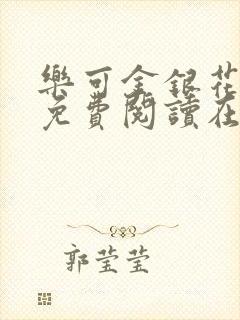 樂可金銀花
免費閱讀在
郭莹莹